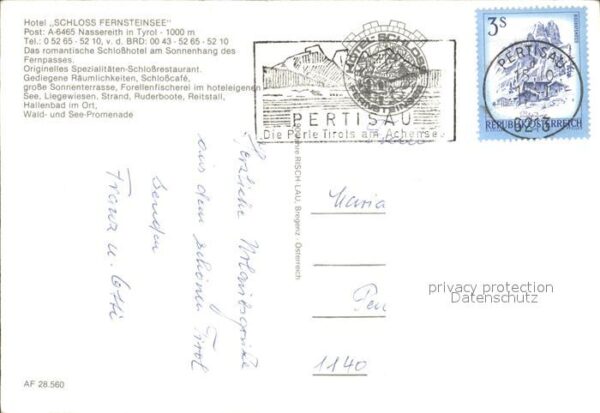 Hotel „SCHLOSS FERNSTEINSEE"
Post: A-6465 Nassereith in Tyrol - 1000 m
Tel.: 0 52 65 - 52 10, v. d. BRD: 00 43 - 52 65 - 52 10
Das romantische Schloßhotel am Sonnenhang des
Fernpasses.
Originelles Spezialitäten-Schloßrestaurant.
Gediegene Räumlichkeiten, Schloßcafé,
große Sonnenterrasse, Forellenfischerei im hoteleigenen
See, Liegewiesen, Strand, Ruderboote, Reitstall,
Hallenbad im Ort,
Wald- und See-Promenade
HOTEL SCHLOSS
FERNSTEINSEE
PERTISAU
Die Perle Tirols am Achensee
3 S
REPUBLIK ÖSTERREICH
PERTISAU
6213
Herzliche Urlaubsgrüße
aus dem schönen Tirol
senden
Franz u. Otti
RISCH-LAU, Bregenz - Österreich
Maria
1140
privacy protection
Datenschutz
AF 28.560